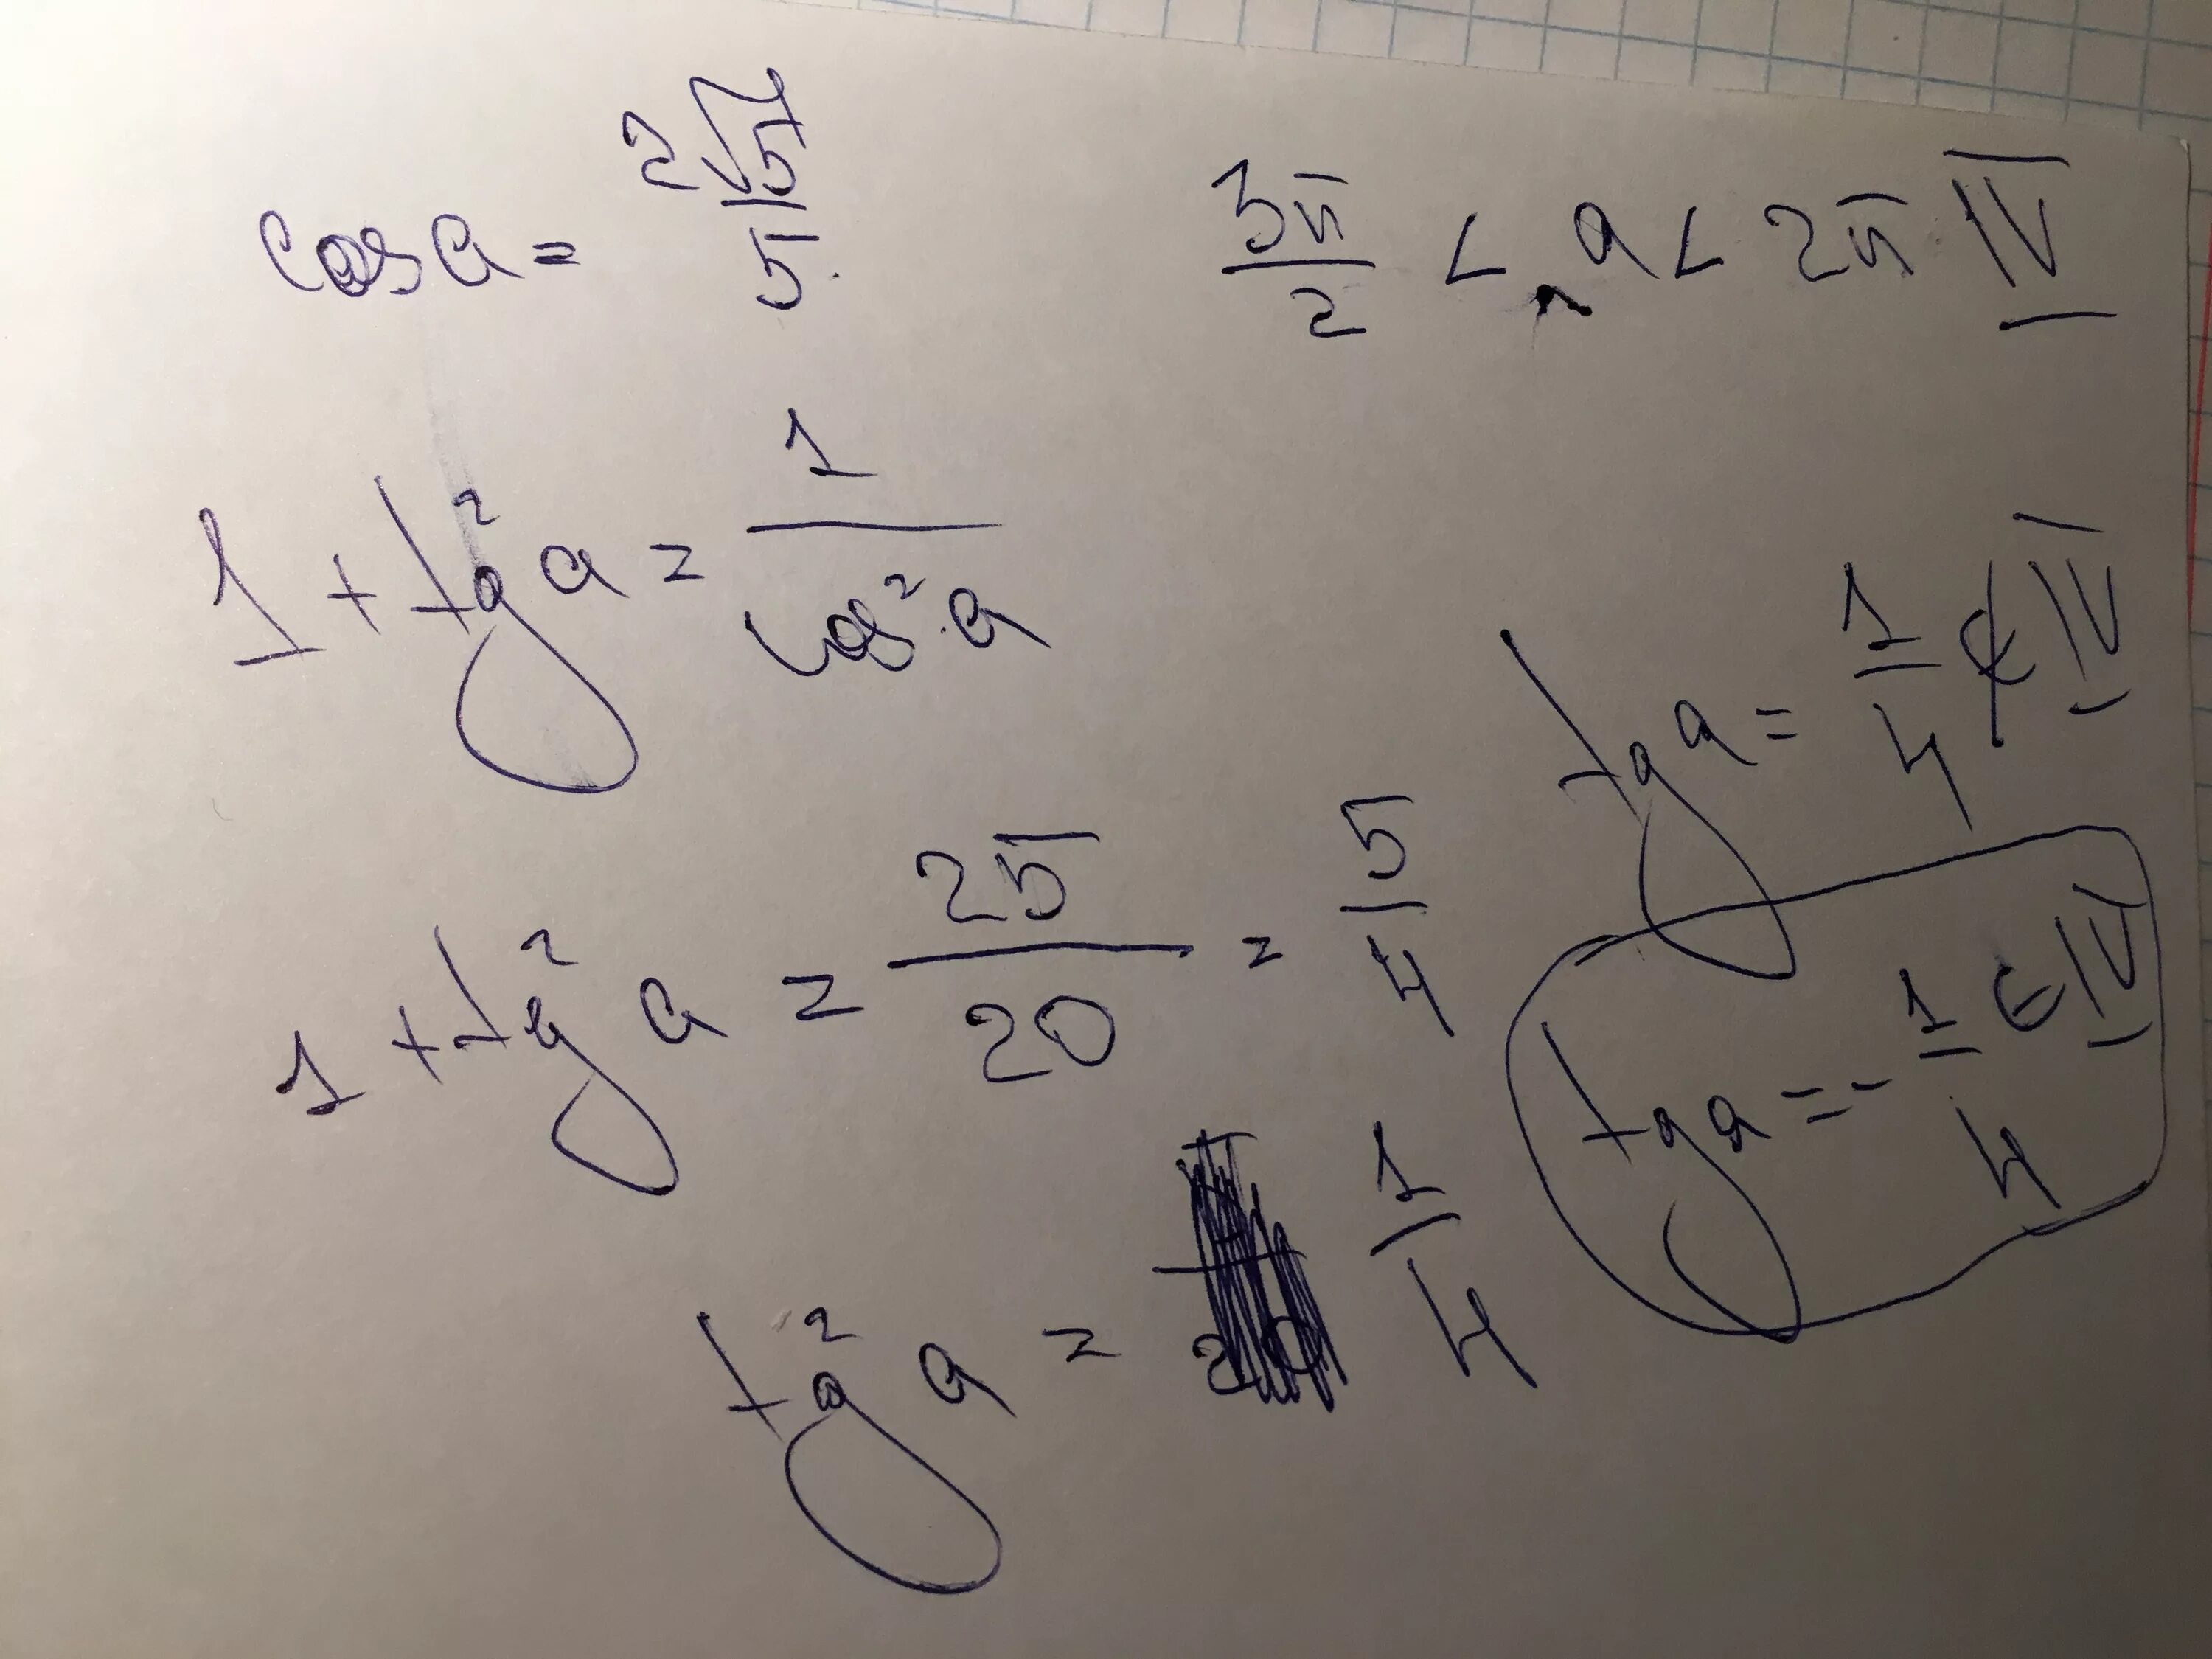 cos a = 2√5/5
3π/2 < a < 2π IV
1 + tg² a = 1/cos² a
1 + tg² a = 25/20 = 5/4
tg² a = 1/4
tg a = 1/4 ∉ IV
tg a = -1/4 ∈ IV